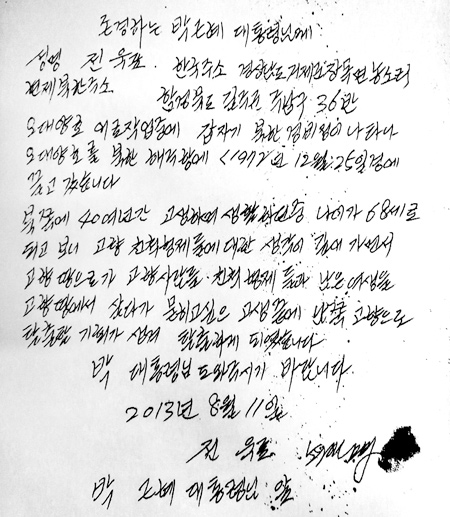 존경하는 박근혜 대통령님에게
성명 전욱표. 한국주소 경남도 거제군 장목면 농소리
현재북한주소 함경북도 길주군 36반
오대양호 어로작업중에 갑자기 북한경비정이 나타나
오대양호를 북한 해주항에 <1972년 12월 25일경에
끌고 갔습니다
북쪽에 40여년간 고생하며 생활하던중 나이가 68세로
되고 보니 고향 친척형제들에 대한 생각이 깊어 가면서
고향땅으로 가 고향사람들. 친척형제들과 남은 여생을
고향땅에서 살다가 묻히고싶은 고생끝에 남쪽 고향으로
탈출할 기회가 생겨 탈출하게 되였습니다
박 대통령님 도와주시기 바랍니다.
2013년 8월 11일
전욱표
박 근혜 대통령님 앞